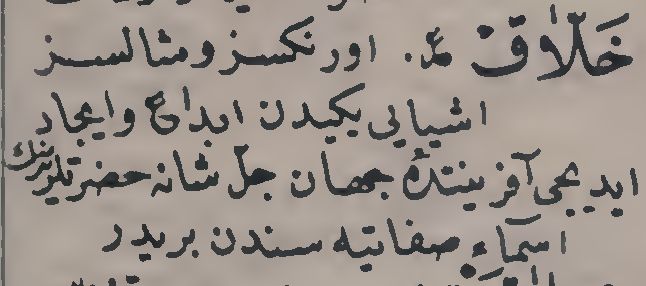 خَلَّاقْ ع. اورنكسز ومثالسز
اشيايى يكيدن ابداع وايجاد
ايديجى آفرينندۀ جهان جلّ شانه حضرتلرينك
اسماء صفاتيه سندن بريدر